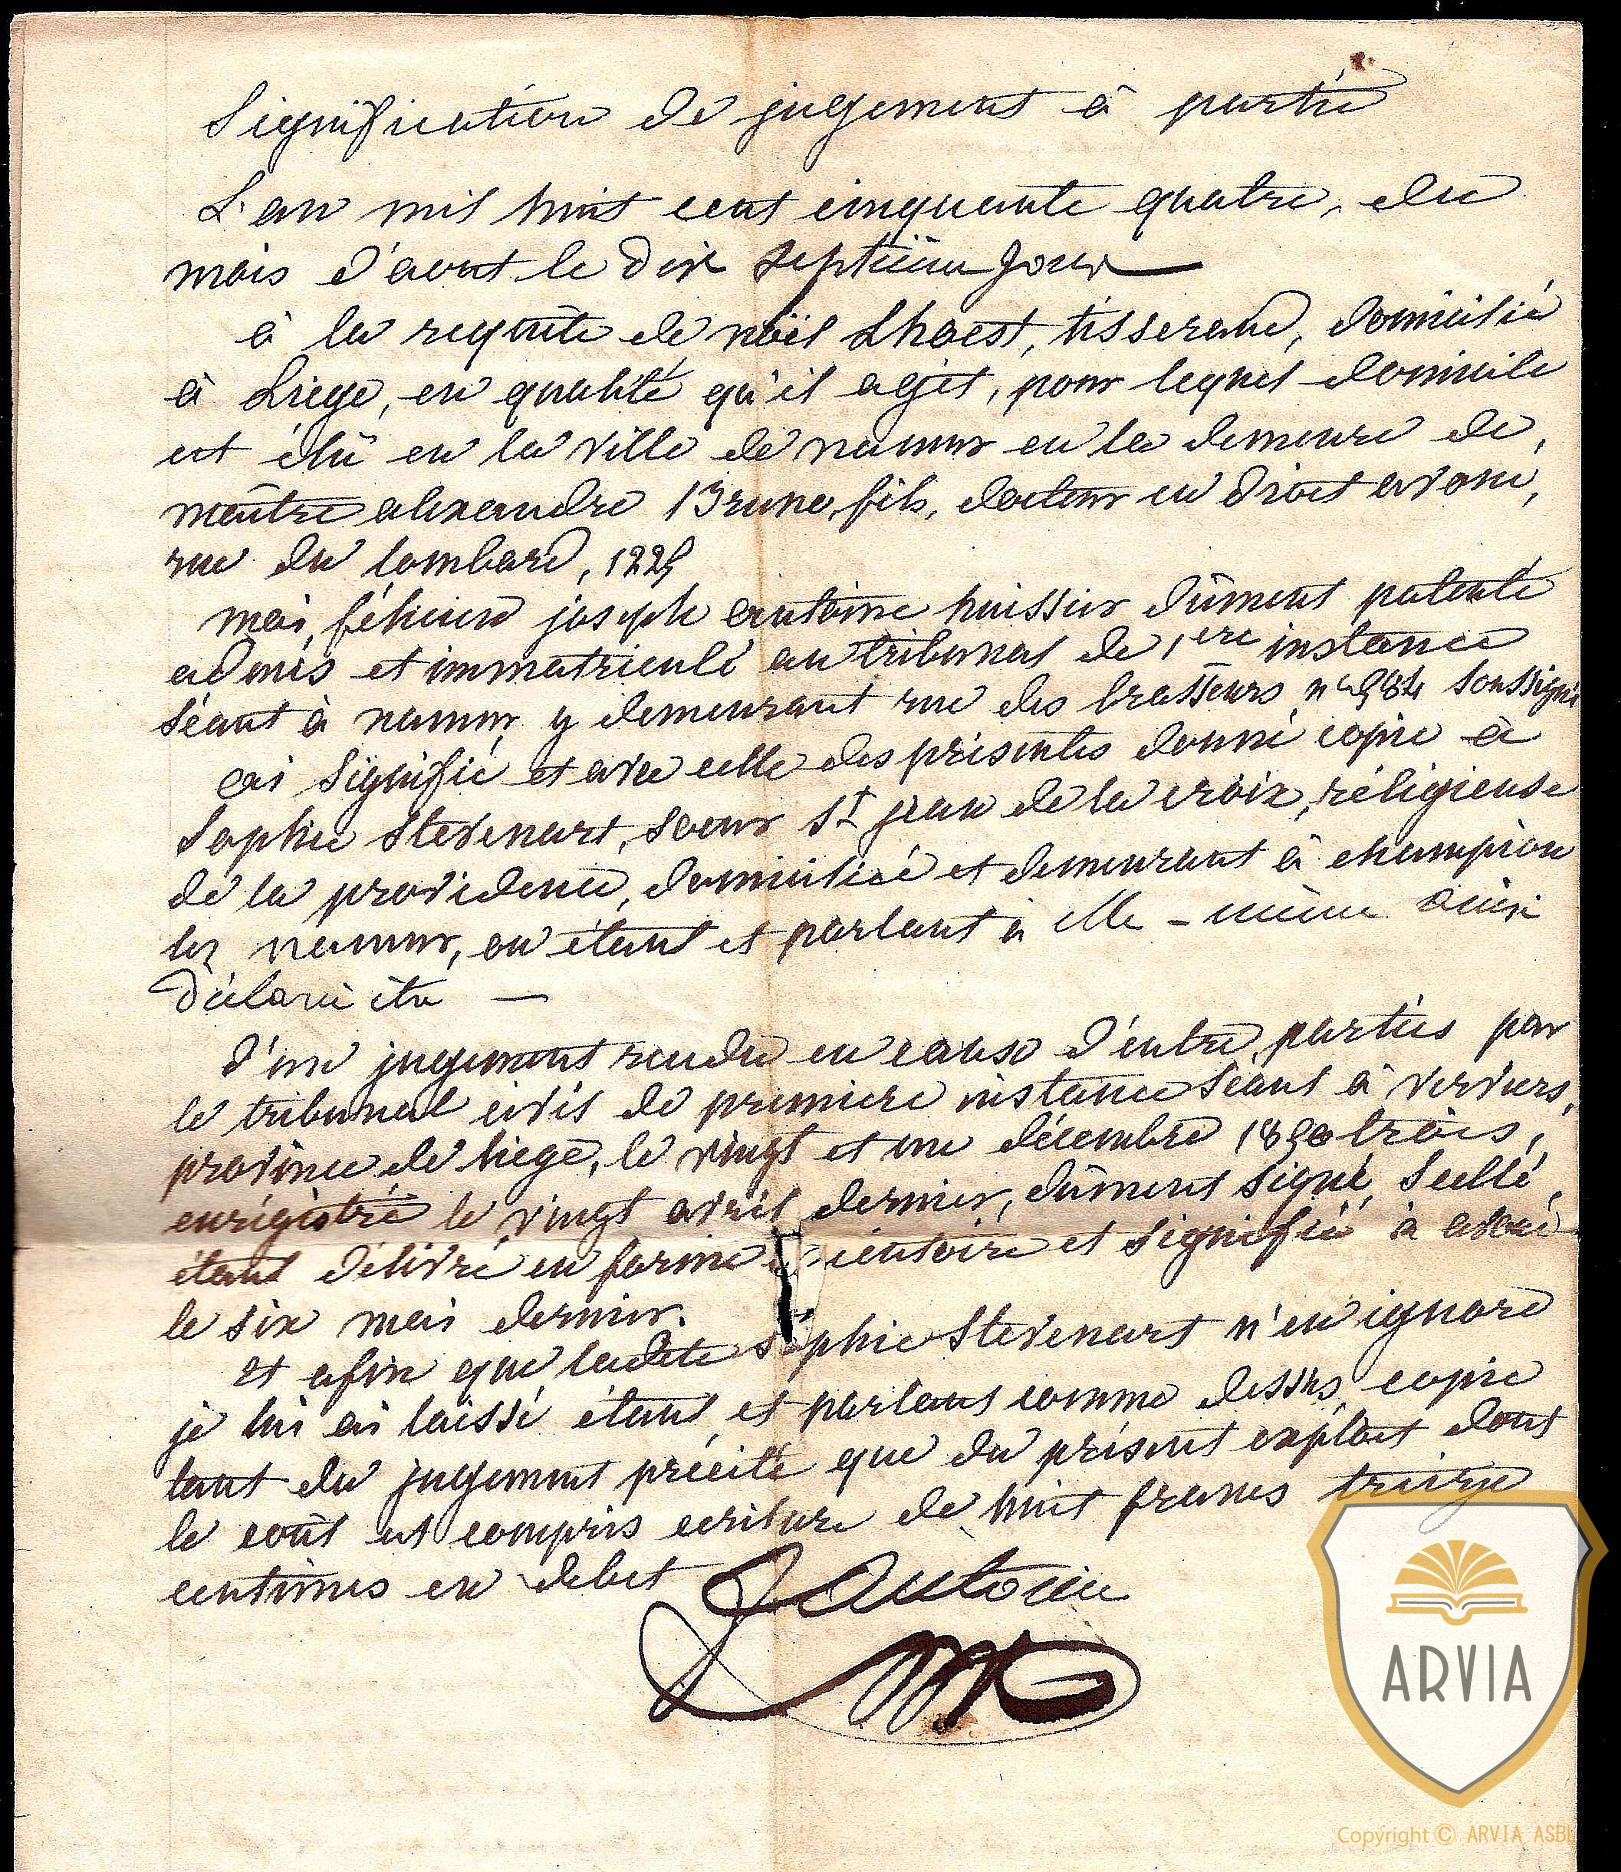 Signification de jugement à partie
L'an mil huit cent cinquante quatre, du
mois d'aout le dix septième jour
à la requête de noël Lhoest, tisserand, domicilié
à Liège, en qualité qu'il agit, pour lequel domicile
est élu en la ville de namur en la demeure de
maître alexandre Bruno, fils, docteur en droit avoué,
rue du lombard,
moi, félicien joseph antoine huissier dûment patenté
admis et immatriculé au tribunal de 1ere instance
séant à namur y demeurant rue des brasseurs, n° 984 soussigné
ai signifié et avec celle des présentes donné copie à
Sophie Stevenart, soeur St jean de la croix, réligieuse
de la providence, domiciliée et demeurant à champion
lez namur, en étant et parlant à elle-même ainsi
déclaré être
d'un jugement rendu en cause d'entre parties par
le tribunal civil de premiere instance séant à verviers,
province de liège, le vingt et un décembre 1850 trois,
enrégistré le vingt avril dernier, dûment signé, scellé,
étant délivré en forme écutoire et signifié à avoué
le six mai dernier.
et afin que ladite sophie Stevenart n'en ignore
je lui ai laissé étant et parlant comme dessus, copie
tant du jugement précité que du présent exploit dont
le coût est compris ecriture de huit francs treize
centimes en debet
Antoine
ARVIA
Copyright © ARVIA ASBL